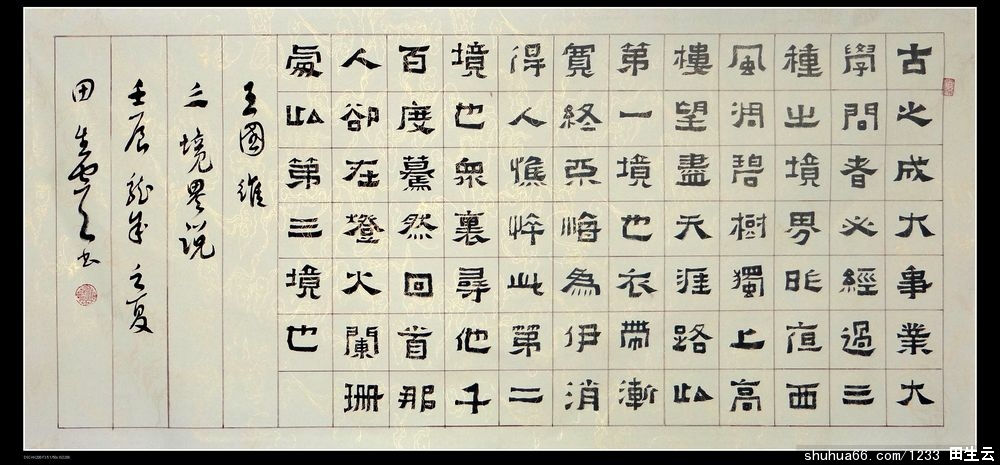 古之成大事業大
學問者必經過三
種之境界昨夜西
風凋碧樹獨上高
樓望盡天涯路此
第一境也衣帶漸
寬終不悔為伊消
得人憔悴此第二
境也衆裏尋他千
百度驀然回首那
人卻在燈火闌珊
處此第三境也
王國維
三境界說
壬辰龍年之夏
田生雲書
shuhua66.com/1233 田生云